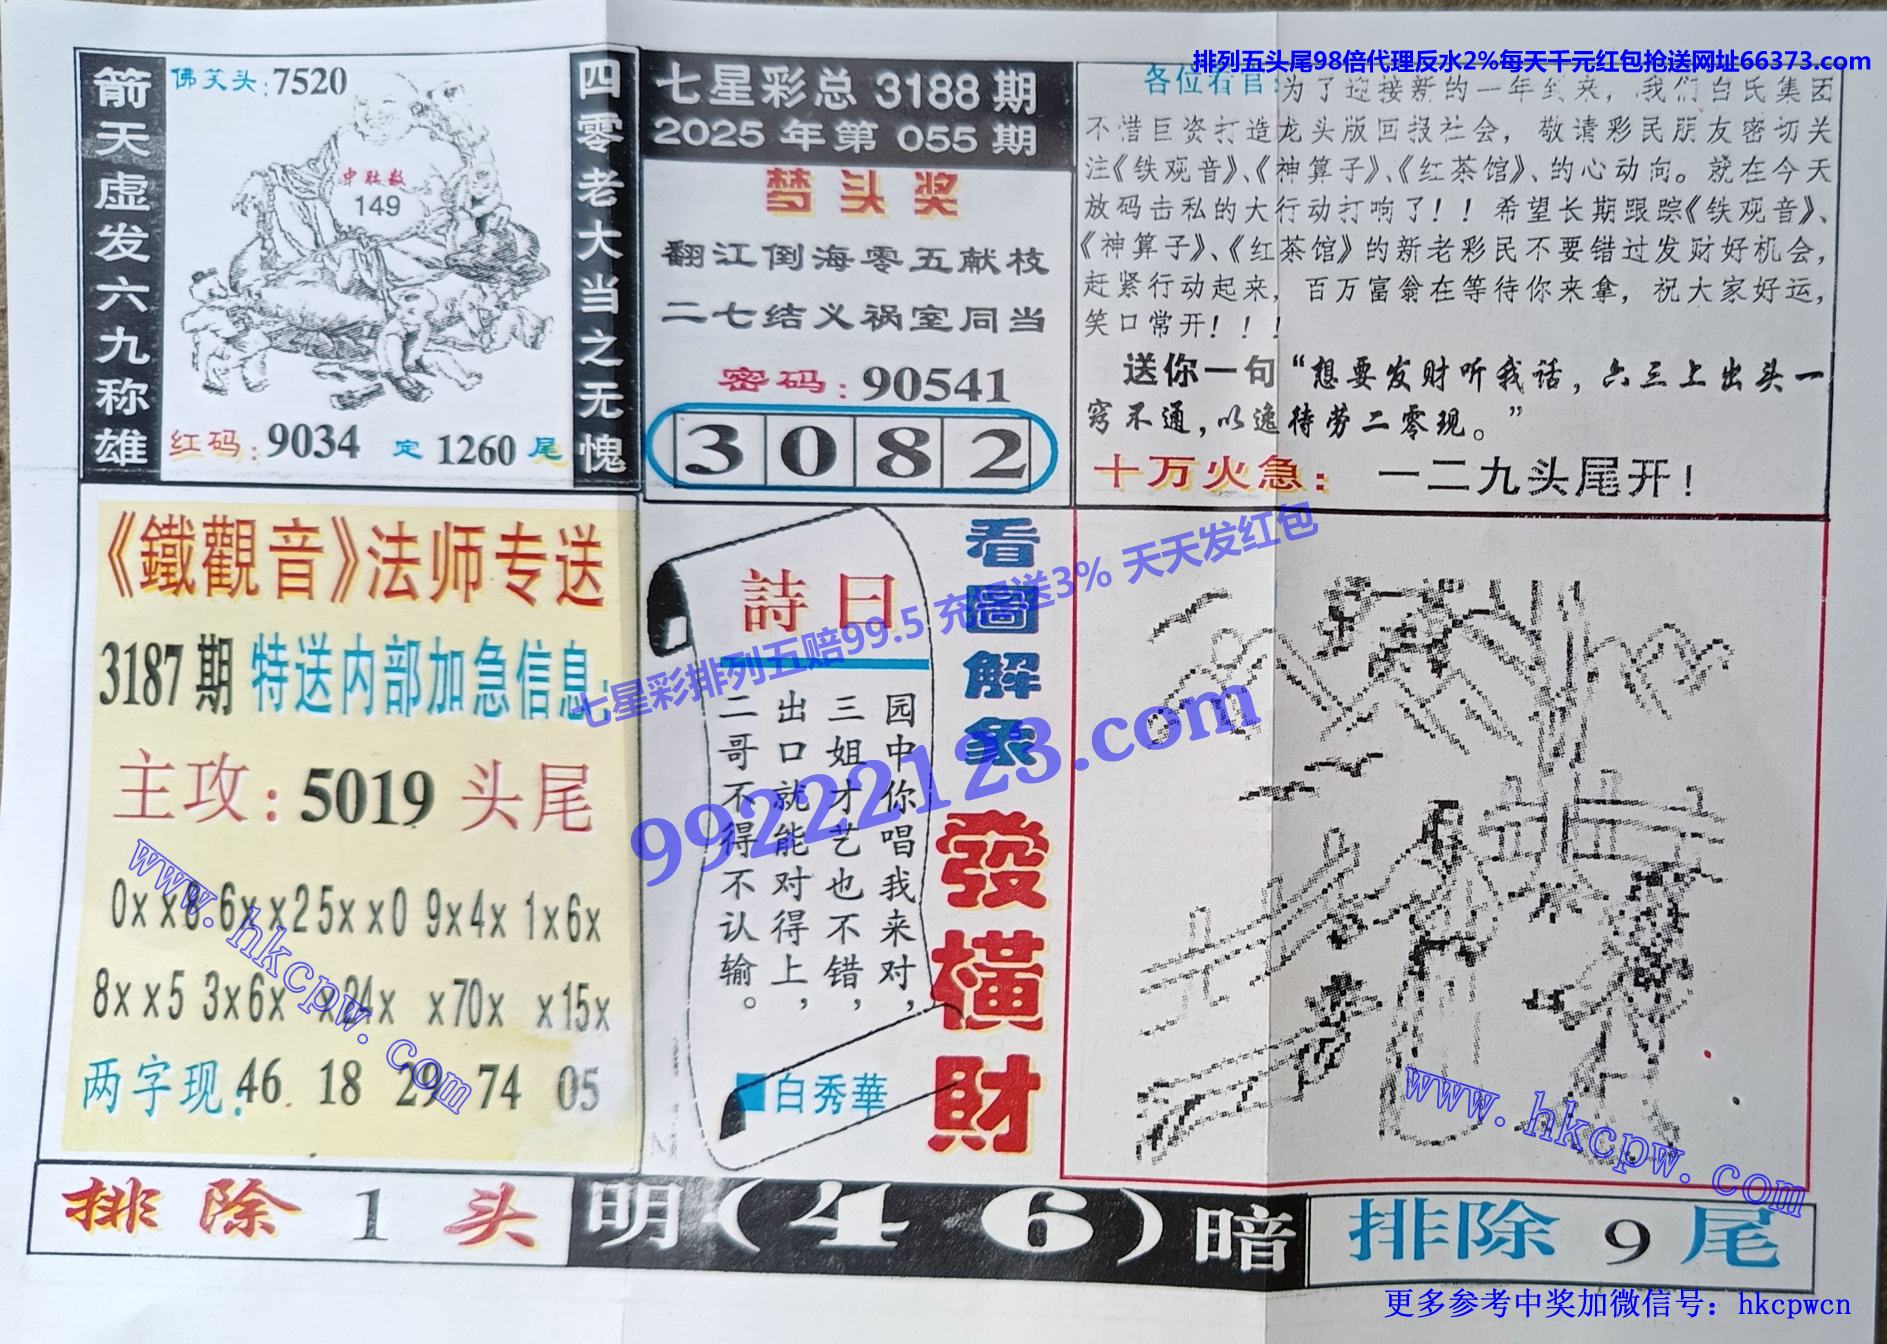 排列五头尾98倍代理反水2%每天千元红包抢送网址66373.com
箭天虚发六九称雄
佛笑头:7520
中肚数
149
红码:9034 定1260尾
四零老大当之无愧
七星彩总 3188 期
2025 年第 055 期
梦头奖
翻江倒海零五献枝
二七结义祸室同当
密码:90541
3 0 8 2
各位看官:为了迎接新的一年到来,我们白氏集团
不惜巨资打造龙头版回报社会,敬请彩民朋友密切关
注《铁观音》、《神算子》、《红茶馆》、的心动向。就在今天
放码击私的大行动打响了!!希望长期跟踪《铁观音》、
《神算子》、《红茶馆》的新老彩民不要错过发财好机会,
赶紧行动起来,百万富翁在等待你来拿,祝大家好运,
笑口常开!!!
送你一句“想要发财听我话,六三上出头一
窍不通,以逸待劳二零现。”
十万火急:一二九头尾开!
《鐵觀音》法师专送
3187期 特送内部加急信息:
主攻:5019 头尾
0xx8 6xx2 5xx0 9x4x 1x6x
8xx5 3x6x x24x x70x x15x
两字现:46 18 29 74 05
詩曰
园中你唱我来对,
三姐才艺也不错,
出口就能对得上,
二哥不得不认输。
白秀華
看圖解象
發橫財
七星彩排列五赔99.5 充圆送3% 天天发红包
99222123.com
www.hkcpw.com
www.hkcpw.com
排除 1 头
明(4 6)暗
排除 9 尾
更多参考中奖加微信号:hkcpwcn